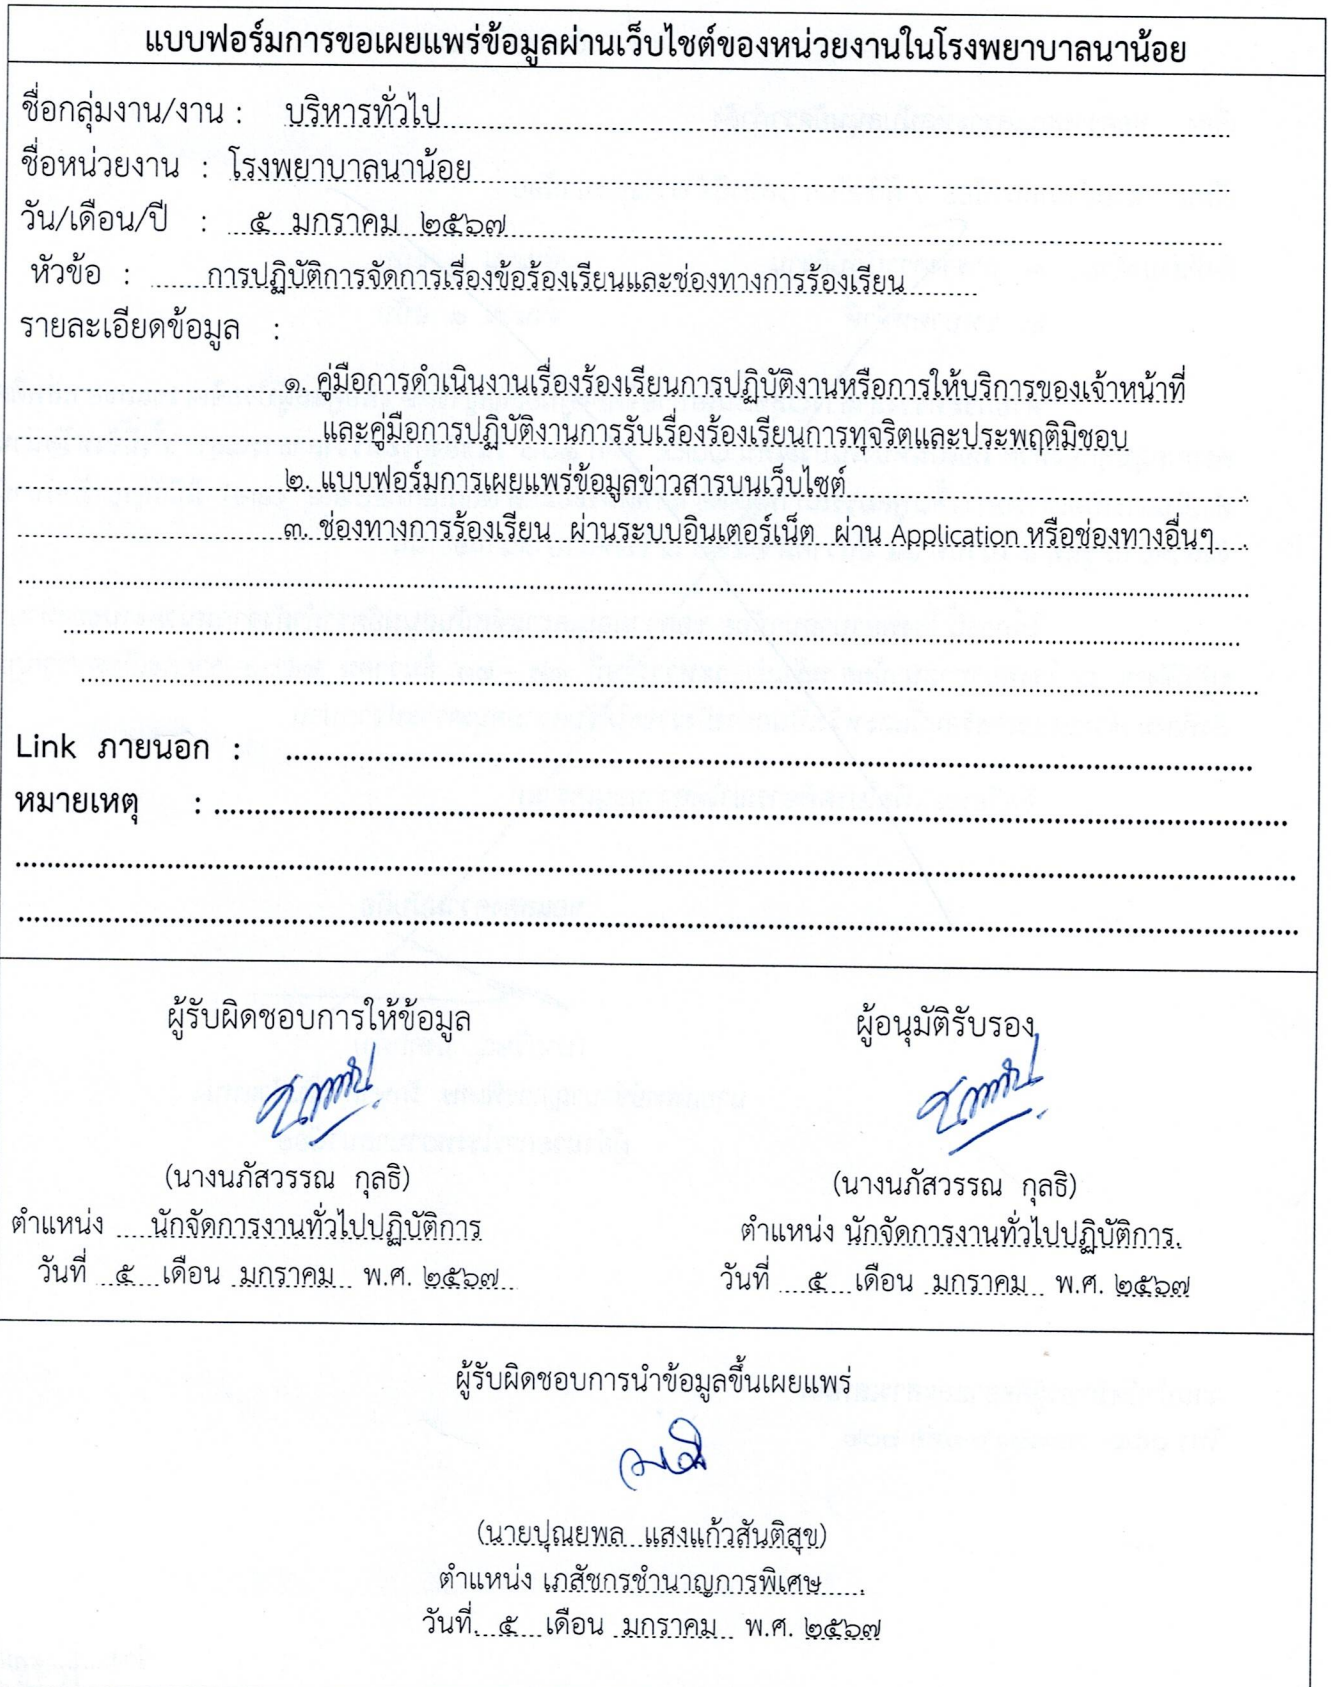 แบบฟอร์มการขอเผยแพร่ข้อมูลผ่านเว็บไซต์ของหน่วยงานในโรงพยาบาลนาน้อย
ชื่อกลุ่มงาน/งาน : บริหารทั่วไป
ชื่อหน่วยงาน : โรงพยาบาลนาน้อย
วัน/เดือน/ปี : ๕ มกราคม ๒๕๖๗
หัวข้อ : การปฏิบัติการจัดการเรื่องข้อร้องเรียนและช่องทางการร้องเรียน
รายละเอียดข้อมูล :
๑. คู่มือการดำเนินงานเรื่องร้องเรียนการปฏิบัติงานหรือการให้บริการของเจ้าหน้าที่
และคู่มือการปฏิบัติงานการรับเรื่องร้องเรียนการทุจริตและประพฤติมิชอบ
๒. แบบฟอร์มการเผยแพร่ข้อมูลข่าวสารบนเว็บไซต์
๓. ช่องทางการร้องเรียน ผ่านระบบอินเตอร์เน็ต ผ่าน Application หรือช่องทางอื่นๆ
Link ภายนอก :
หมายเหตุ :
ผู้รับผิดชอบการให้ข้อมูล ผู้อนุมัติรับรอง
(นางนภัสวรรณ กุลธิ) (นางนภัสวรรณ กุลธิ)
ตำแหน่ง นักจัดการงานทั่วไปปฏิบัติการ ตำแหน่ง นักจัดการงานทั่วไปปฏิบัติการ.
วันที่ ๕ เดือน มกราคม พ.ศ. ๒๕๖๗ วันที่ ๕ เดือน มกราคม พ.ศ. ๒๕๖๗
ผู้รับผิดชอบการนำข้อมูลขึ้นเผยแพร่
(นายปุณยพล แสงแก้วสันติสุข)
ตำแหน่ง เภสัชกรชำนาญการพิเศษ
วันที่ ๕ เดือน มกราคม พ.ศ. ๒๕๖๗